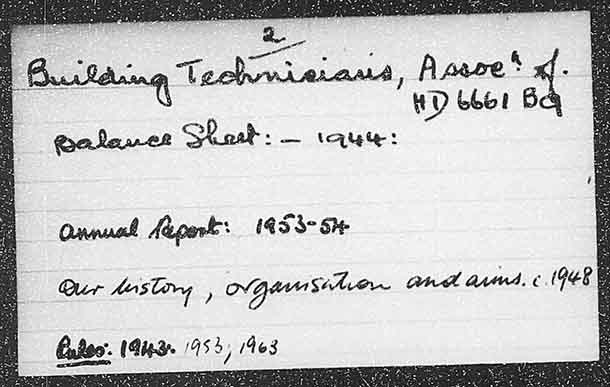 2
Building Technicians, Assocn of.
HD 6661 B9
Balance Sheet: - 1944:
Annual Report: 1953-54
Our history, organisation and aims. c.1948
Rules: 1943. 1953, 1963